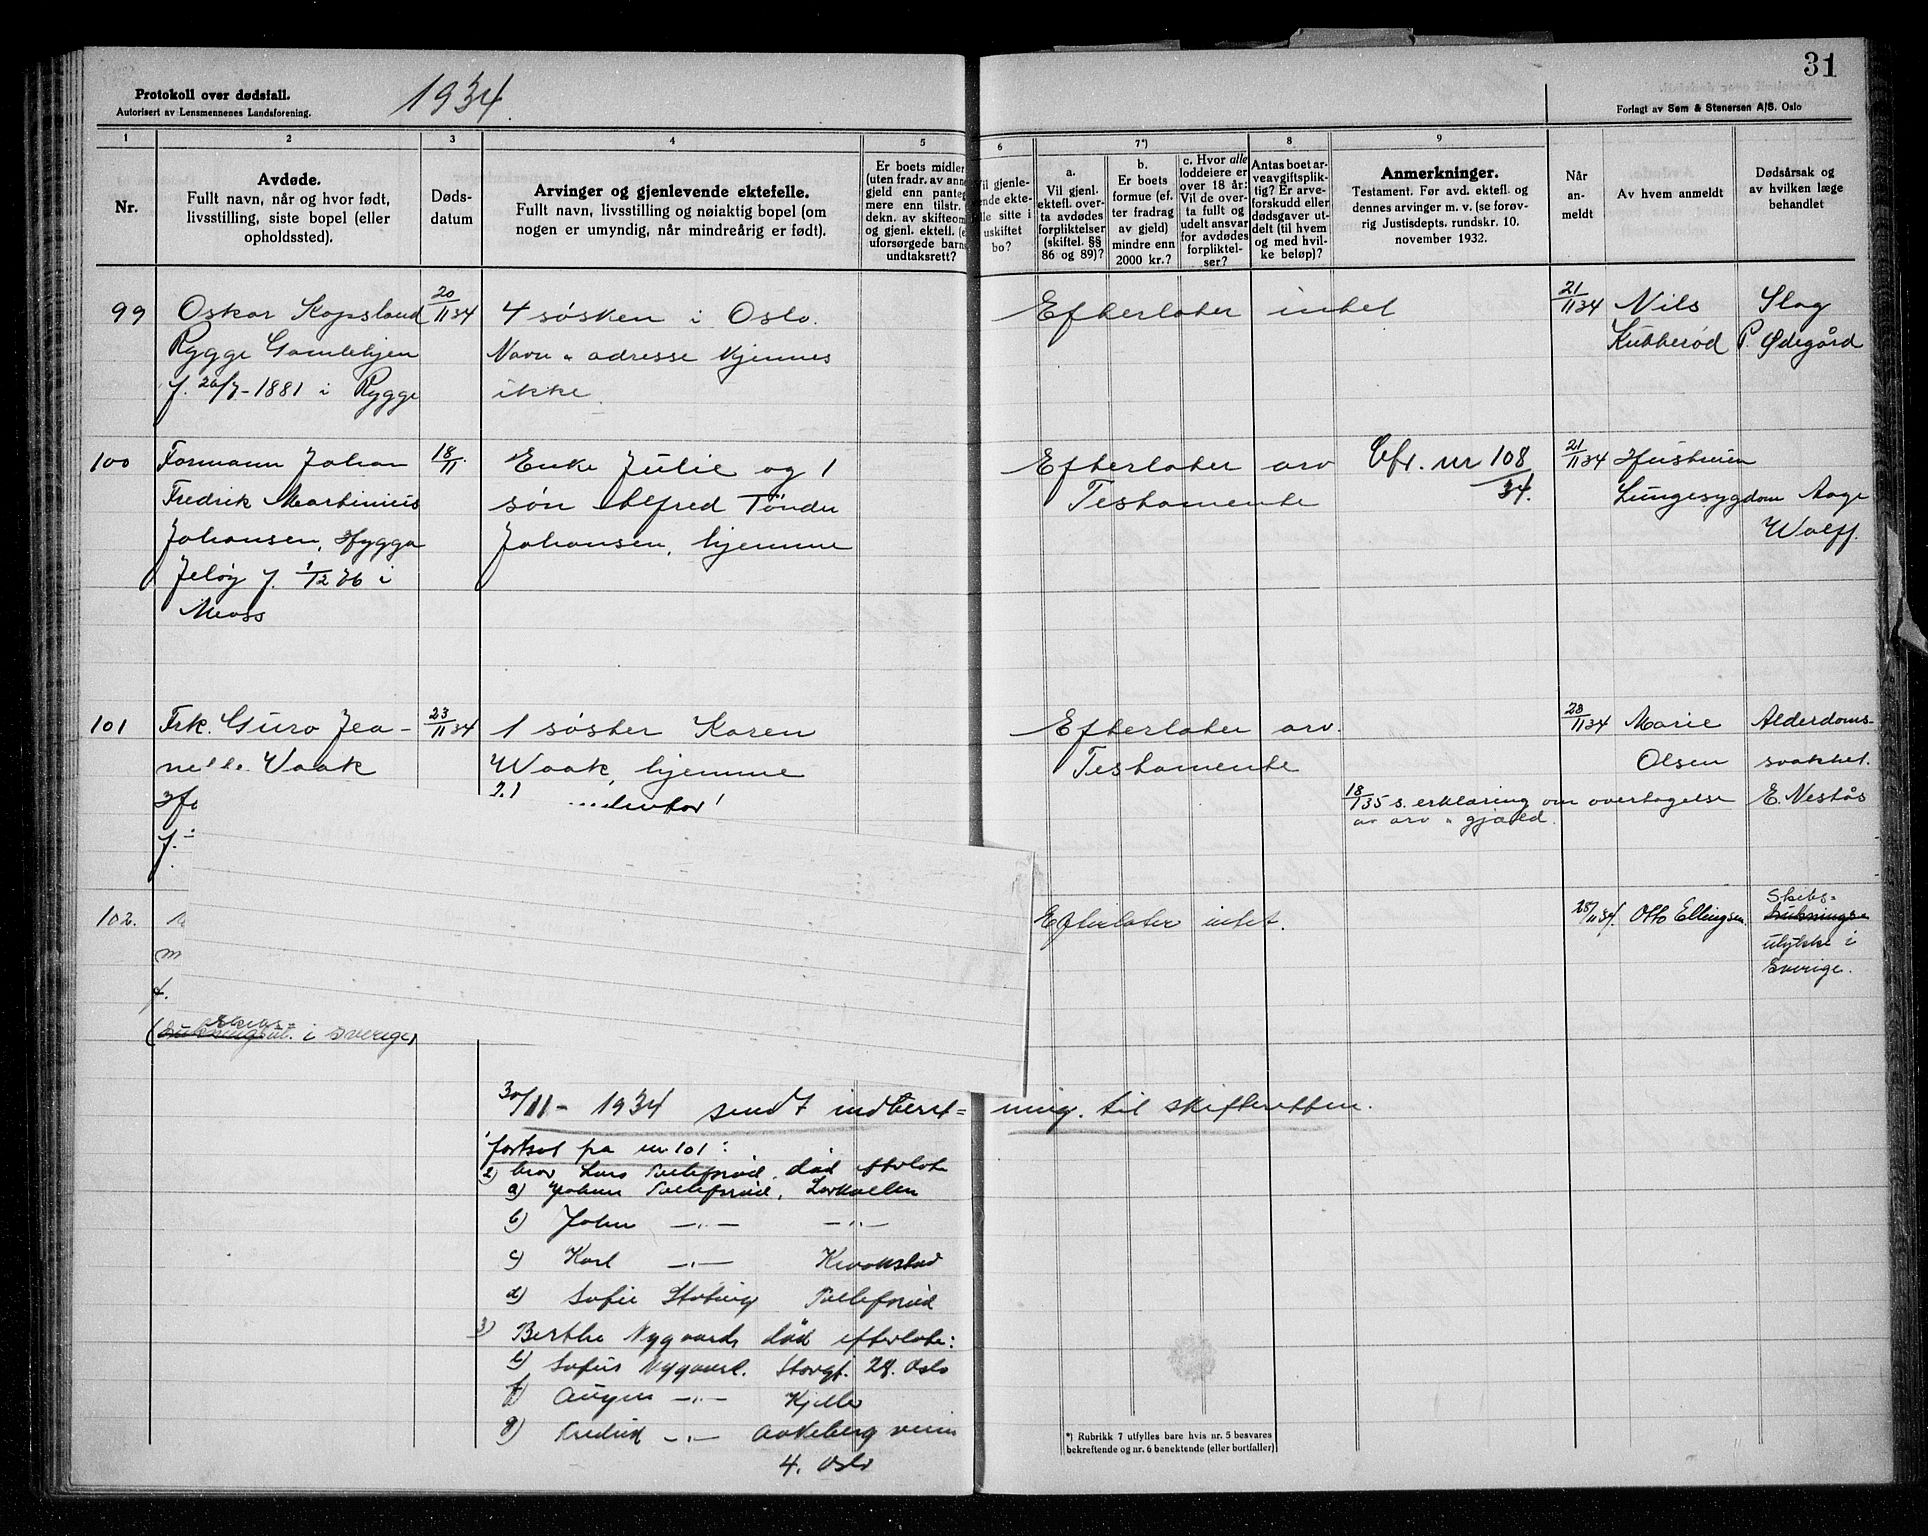 31
Protokoll over dødsfall.
Autorisert av Lensmennenes Landsforening.
1934.
Forlagt av Sem & Stenersen A/S. Oslo
1
2
3
4
5
6
7*)
8
9
Nr.
Avdøde.
Fullt navn, når og hvor født,
livsstilling, siste bopel (eller
opholdssted).
Døds-
datum
Arvinger og gjenlevende ektefelle.
Fullt navn, livsstilling og nøiaktig bopel (om
nogen er umyndig, når mindreårig er født).
Er boets midler
(uten fradr. av anne
gjeld enn panteg
mere enn tilstr.
dekn. av skifteom
og gjenl. ektefl. (e
uforsørgede barns
undtaksrett?
Vil gjenle-
ende ekte-
lle sitte i
uskiftet
bo?
a.
Vil gjenl.
ektefl. over-
ta avdødes
forpliktelser
(skiftel. §§
86 og 89)?
b.
Er boets
formue (ef-
ter fradrag
av gjeld)
mindre enn
2000 kr.?
c. Hvor alle
loddeiere er
over 18 år:
Vil de over-
ta fullt og
udelt ansvar
for avdødes
forpliktel-
ser?
Antas boet ar-
veavgiftsplik-
tig? Er arve-
forskudd eller
dødsgaver ut-
delt (til hvem
og med hvil-
ke beløp)?
Anmerkninger.
Testament. Før avd. ektefl. og
dennes arvinger m. v. (se forøv-
rig Justisdepts. rundskr. 10.
november 1932.
Når
an-
meldt
Av hvem anmeldt
Dødsårsak og
av hvilken læge
behandlet
99 Oskar Kopsland 20/11 34 4 søsken i Oslo. Efterlater intet 21/11 34 Nils Slag
Rygge Gamlehjem Navn & adresse kjennes Kubberød P. Ødegård
f. 26/7-1881 i Rygge ikke.
100 Formann Johan 18/11 Enke Julie og 1 Efterlater arv Cfr. nr 108/34. 21/11 34 Hustruen
Fredrik Martinius søn Alfred Tønder Testamente Lungesygdom Aage
Johansen, Hygga Johansen, hjemme Wolff.
Jeløy f. 1/12 76 i
Moss
101 Frk. Guro Jea- 23/11 34 1 søster Karen Efterlater arv. 28/11 34 Marie Alderdoms-
nelle Vaak Waak, hjemme Testamente Olsen svakhet.
18/1 35 s. erklæring om overtagelse E. Nestås
av arv & gjæld.
f.
102. Efterlater intet. 28/11 34. Otto Ellingsen Skibs=
druknings
ulykke i
Sverige.
m
f.
Skibs=
(drukningsul. i Sverige)
30/11 - 1934 sendt indberet= ning. til skifteretten.
fortsat fra nr 101:
2) bror Lars Tollefsrød, død efterlate
a) Johan Tollefsrød, Larkollen
b) John —"— —"—
c) Karl —"— Kroakstad
d) Sofie Støtvig Tollefsrød
3) Berthe Nygaard, død efterlate:
e) Sofus Nygaard. Storgt. 28. Oslo
f) August —"— Kjeller
g) Fredrik —"— Aakeberg veien
4. Oslo
*) Rubrikk 7 utfylles bare hvis nr. 5 besvares
bekreftende og nr. 6 benektende (eller bortfaller)